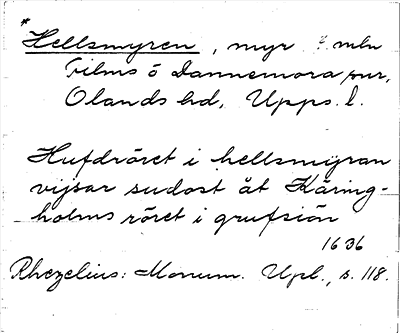 *
Hellsmyren, myr ? mln
Films ö Dannemora snr,
Olands hd, Upps. l.
Hufdröret i hellsmyran
vijsar sudost åt Käring-
holms röret i grufsiön
1636
Rhezelius: Monum. Upl., s. 118.